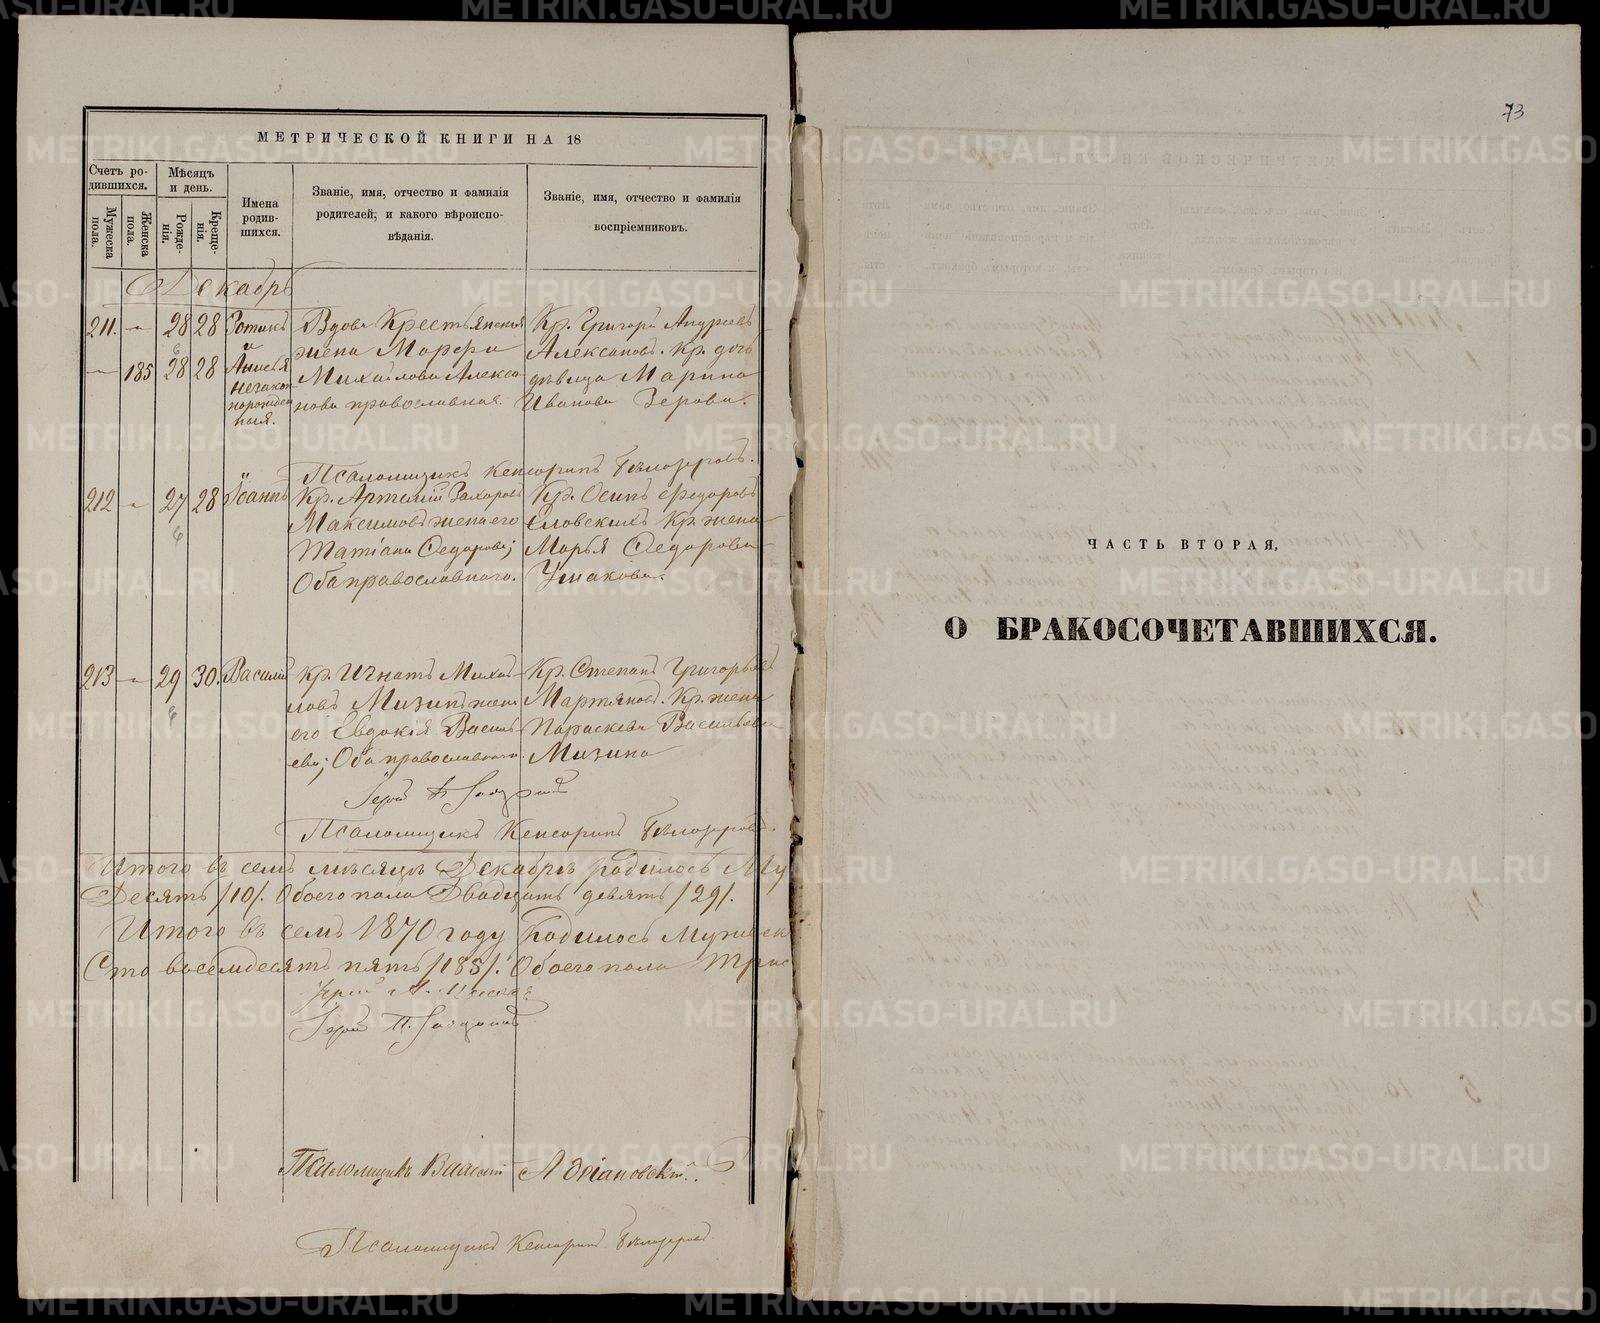 МЕТРИЧЕСКОЙ КНИГИ НА 18
Счетъ родившихся.
Мужеска пола.
Женска пола.
Мѣсяцъ и день.
Рожденія.
Крещенія.
Имена родившихся.
Званіе, имя, отчество и фамилія родителей, и какого вѣроисповѣданія.
Званіе, имя, отчество и фамилія воспріемниковъ.
Декабрь
211. - 28 28 Фотинъ
и
- 185 28 28 Анисья
незакон
норожден
ныя.
Вдова Крестьянская
жена Марфа
Михайлова Алекса-
нова православная.
Кр. Григорій Андреевъ
Алексановъ. Кр. дочь
дѣвица Марина
Иванова Зерова.
Псаломщикъ Кенсоринъ Бѣлозеровъ.
212 - 27 28 Іоаннъ
Кр. Артемій Захаровъ
Максимовъ жена его
Татіана Федорова;
Оба православнаго.
Кр. Осипъ Федоровъ
Словскихъ Кр. жена
Марья Федорова
Ушакова.
213 - 29 30. Василій
Кр. Игнатъ Михай-
ловъ Мизинъ жена
его Евдокія Василь
ева; Оба православнаго
Кр. Степанъ Григорьевъ
Мартяновъ. Кр. жена
Параскева Васильева
Мизина
Іерей
Псаломщикъ Кенсоринъ Бѣлозеровъ.
Итого въ семъ мѣсяцѣ Декабрѣ родилось Му
Десять /10/. Обоего пола Двадцать девять /29/.
Итого въ семъ 1870 году Родилось Мужеск
Сто восемдесять пять /185/. Обоего пола Трис
Іерей
Іерей П.
Псаломщикъ Василій Адріановскій.
Псаломщикъ Кенсоринъ Бѣлозеровъ
73
ЧАСТЬ ВТОРАЯ,
О БРАКОСОЧЕТАВШИХСЯ.
METRIKI.GASO-URAL.RU